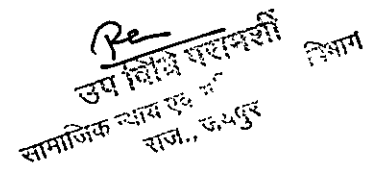 उप विधि परामर्शी
सामाजिक न्याय एवं विभाग
राज., जयपुर